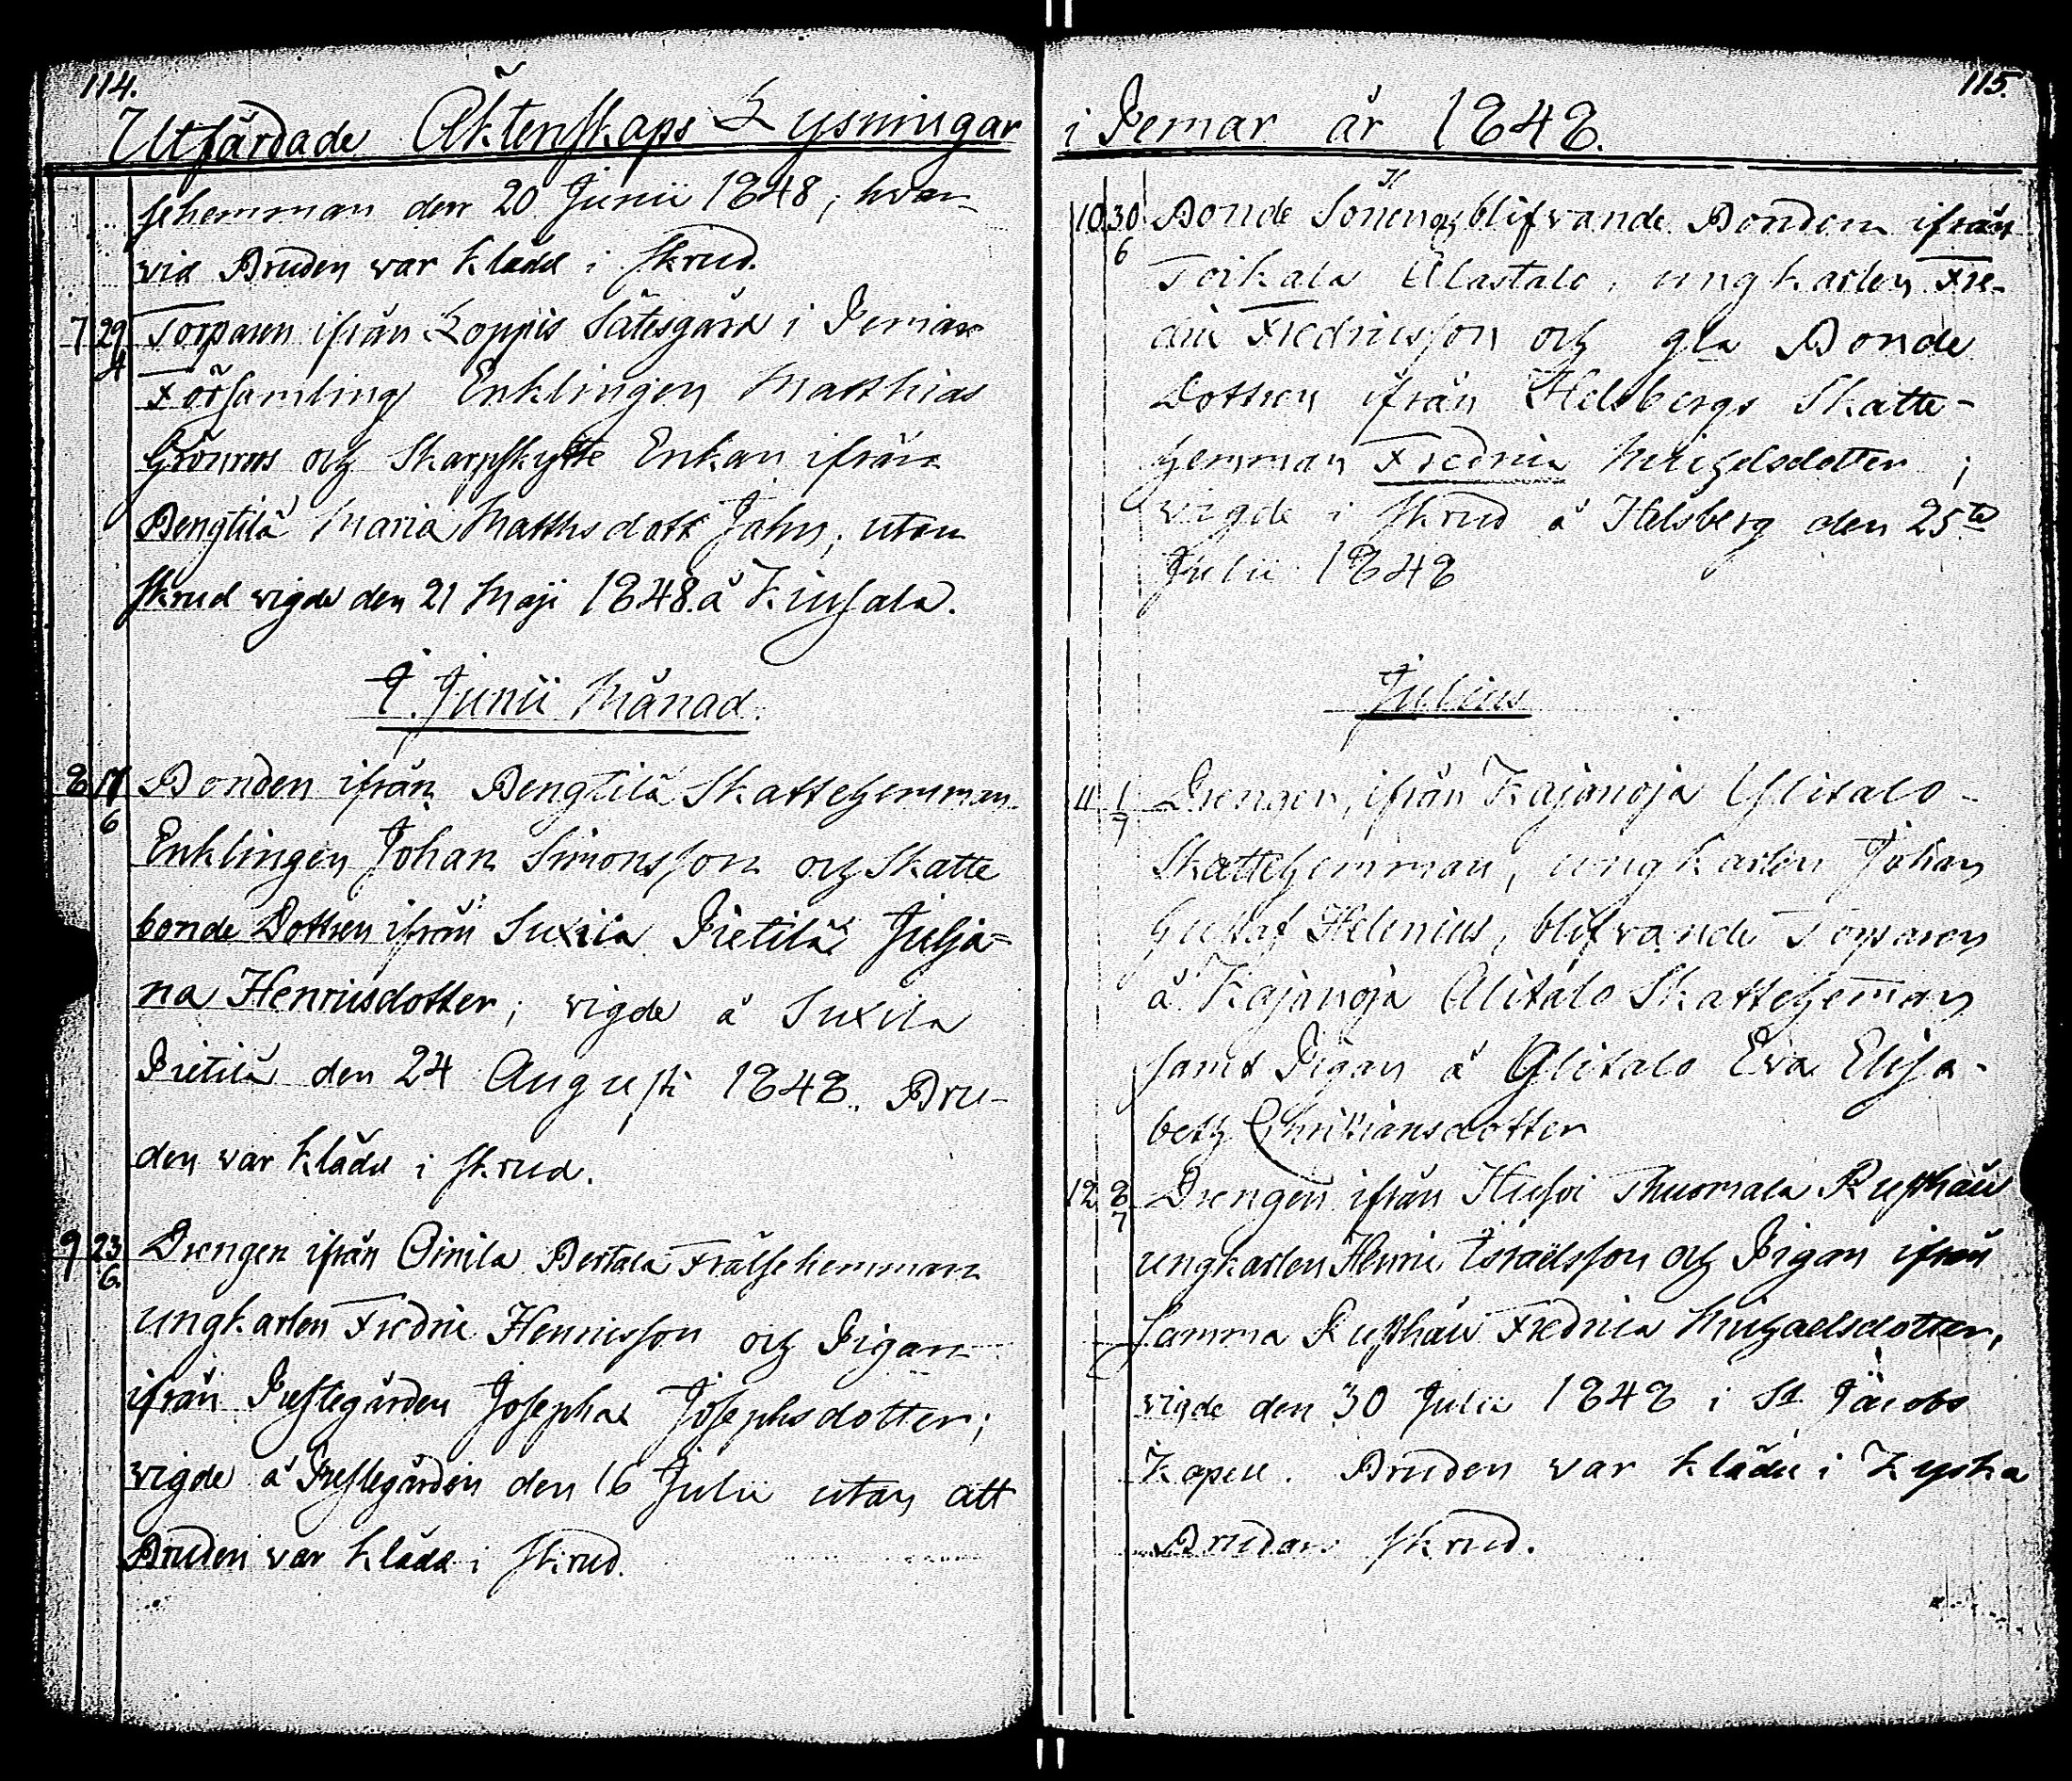 114.
Utfärdade Äktenskaps Lysningar
sehemman den 20 Junii 1848; hvar-
vid Bruden var klädd i skrud.
7 29/4 Torparen ifrån Loppis Sätesgård i Pemar
Församling Enklingen Matthias
Grönroos och Skarpskytte Enkan ifrån
Bengtilä Maria Matthsdotr Jahn; utan
skrud vigde den 21 Maji 1848 å Kinsala.
I Junii Månad.
8 17/6 Bonden ifrån Bengtilä Skattehemman
Enklingen Johan Simonsson och Skatte
bonde Dottren ifrån Suxila Pietilä Julja=
na Henricsdotter; vigde å Suxila
Pietilä den 24 Augusti 1848. Bru-
den var klädd i skrud.
9 23/6 Drengen ifrån Oinila Bertala Frälsehemman
ungkarlen Fredric Henricsson och Pigan
ifrån Prestegården Josepha Josephsdotter;
vigde å Prestegården den 16 Julii utan att
Bruden var klädd i skrud.
115.
i Pemar år 1848.
10 30/6 Bonde Sonen och blifvande Bonden ifrån
Toikala Alastalo, ungkarlen Fre-
dric Fredricsson och gla Bonde
Dottren ifrån Helsbergs Skatte-
hemman Fredrica Michelsdotter;
vigde i skrud å Helsberg den 25te
Julii 1848
Julius
11 1/7 Drengen, ifrån Kajanoja Ylitalo
Skattehemman, ungkarlen Johan
Gustaf Helenius, blifvande Torparen
å Kajanoja Alitalo Skattehemman
samt Pigan å Ylitalo Eva Elisa-
beth Christiansdotter
12 8/7 Drengen ifrån Huhoi Thuomala Rusthåll
ungkarlen Henric Israëlsson och Pigan ifrån
samma Rusthåll Fredrica Michaelsdotter,
vigde den 30 Julii 1848 i St. Jacobs
Kapell. Bruden var klädd i Kyrka
Brudan skrud.